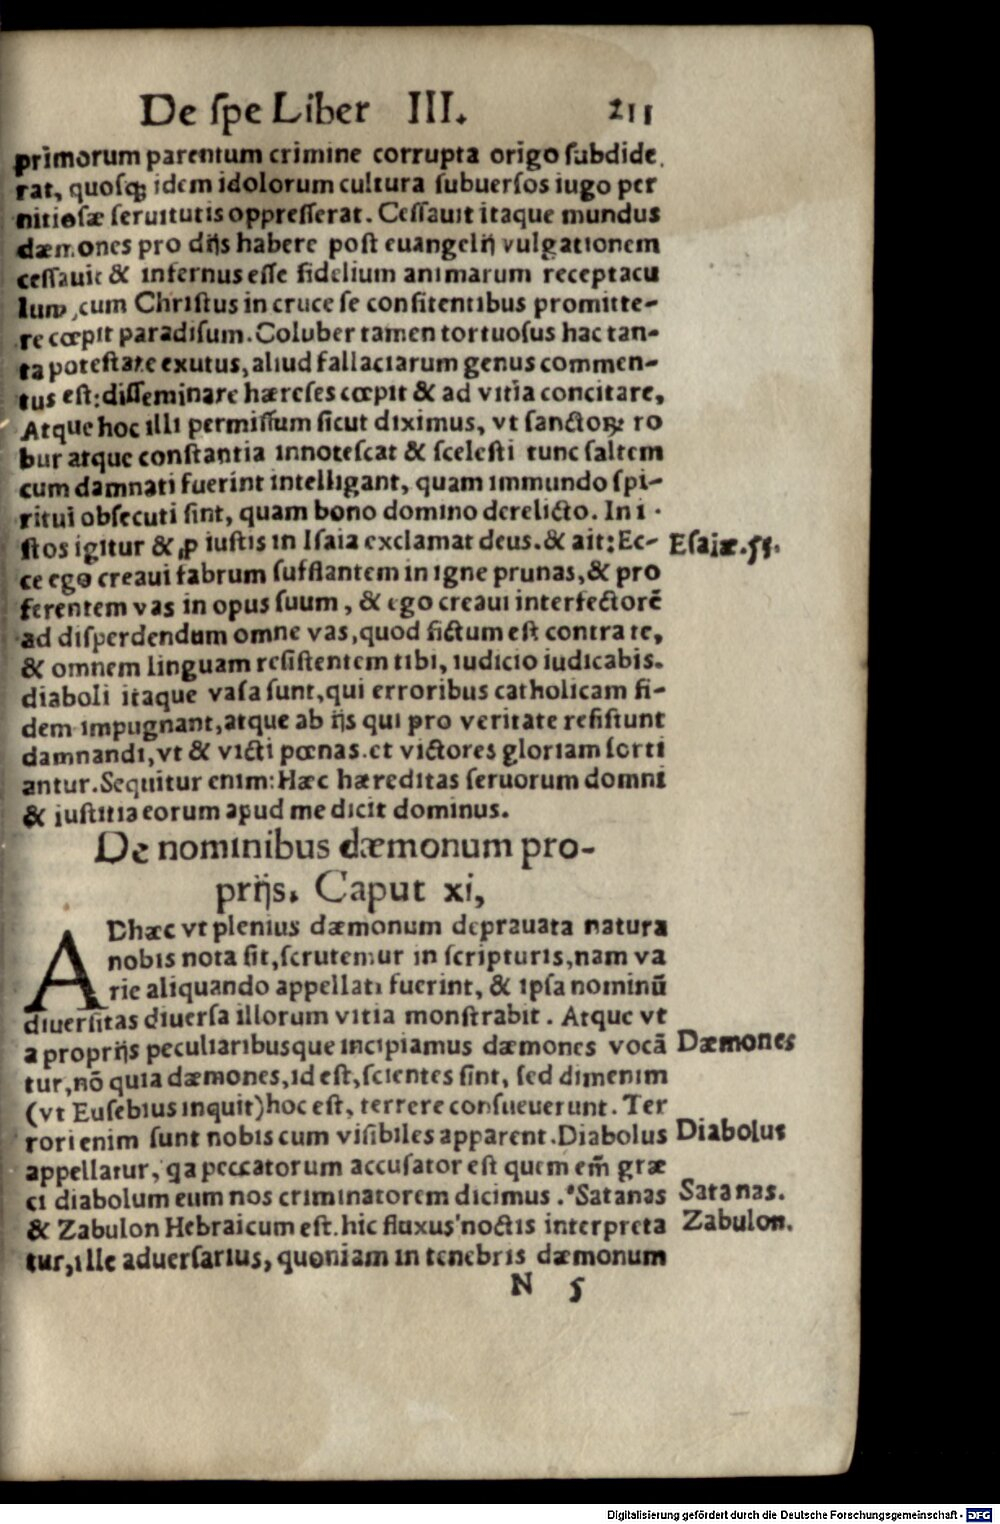 De ſpe Liber III. 211
primorum parentum crimine corrupta origo ſubdide
rat, quoſqꝫ idem idolorum cultura ſubuerſos iugo per
nitioſæ ſeruitutis oppreſſerat. Ceſſauit itaque mundus
dæmones pro dijs habere poſt euangelij vulgationem
ceſſauit & infernus eſſe fidelium animarum receptacu
lum, cum Chriſtus in cruce ſe confitentibus promitte-
re cœpit paradiſum. Coluber tamen tortuoſus hac tan-
ta poteſtate exutus, aliud fallaciarum genus commen-
tus eſt: diſſeminare hæreſes cœpit & ad vitia concitare,
Atque hoc illi permiſſum ſicut diximus, vt ſanctoꝝ ro
bur atque conſtantia innoteſcat & ſceleſti tunc ſaltem
cum damnati fuerint intelligant, quam immundo ſpi-
ritui obſecuti ſint, quam bono domino derelicto. In i-
ſtos igitur & ꝓ iuſtis in Iſaia exclamat deus. & ait: Ec- Eſaiæ. 55.
ce ego creaui fabrum ſufflantem in igne prunas, & pro
ferentem vas in opus ſuum, & ego creaui interfectorē
ad diſperdendum omne vas, quod fictum eſt contra te,
& omnem linguam reſiſtentem tibi, iudicio iudicabis.
diaboli itaque vaſa ſunt, qui erroribus catholicam fi-
dem impugnant, atque ab ijs qui pro veritate reſiſtunt
damnandi, vt & victi pœnas. et victores gloriam ſorti
antur. Sequitur enim: Hæc hæreditas ſeruorum domni
& iuſtitia eorum apud me dicit dominus.
De nominibus dæmonum pro-
prijs. Caput xi,
ADhæc vt plenius dæmonum deprauata natura
nobis nota ſit, ſcrutemur in ſcripturis, nam va
rie aliquando appellati fuerint, & ipſa nominū
diuerſitas diuerſa illorum vitia monſtrabit. Atque vt
a proprijs peculiaribusque incipiamus dæmones vocā Dæmones
tur, nō quia dæmones, id eſt, ſcientes ſint, ſed dimenim
(vt Euſebius inquit) hoc eſt, terrere conſueuerunt. Ter
rori enim ſunt nobis cum viſibiles apparent. Diabolus Diabolus
appellatur, qa peccatorum accuſator eſt quem em̃ græ
ci diabolum eum nos criminatorem dicimus. Satanas Satanas.
& Zabulon Hebraicum eſt. hic fluxus noctis interpreta Zabulon.
tur, ille aduerſarius, quoniam in tenebris dæmonum
N 5
Digitalisierung gefördert durch die Deutsche Forschungsgemeinschaft - DFG